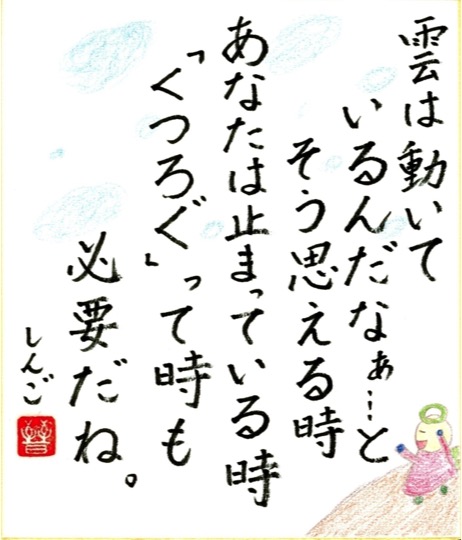 雲は動いて
いるんだなぁ…と
そう思える時
あなたは止まっている時
「くつろぐ」って時も
必要だね。
しんご